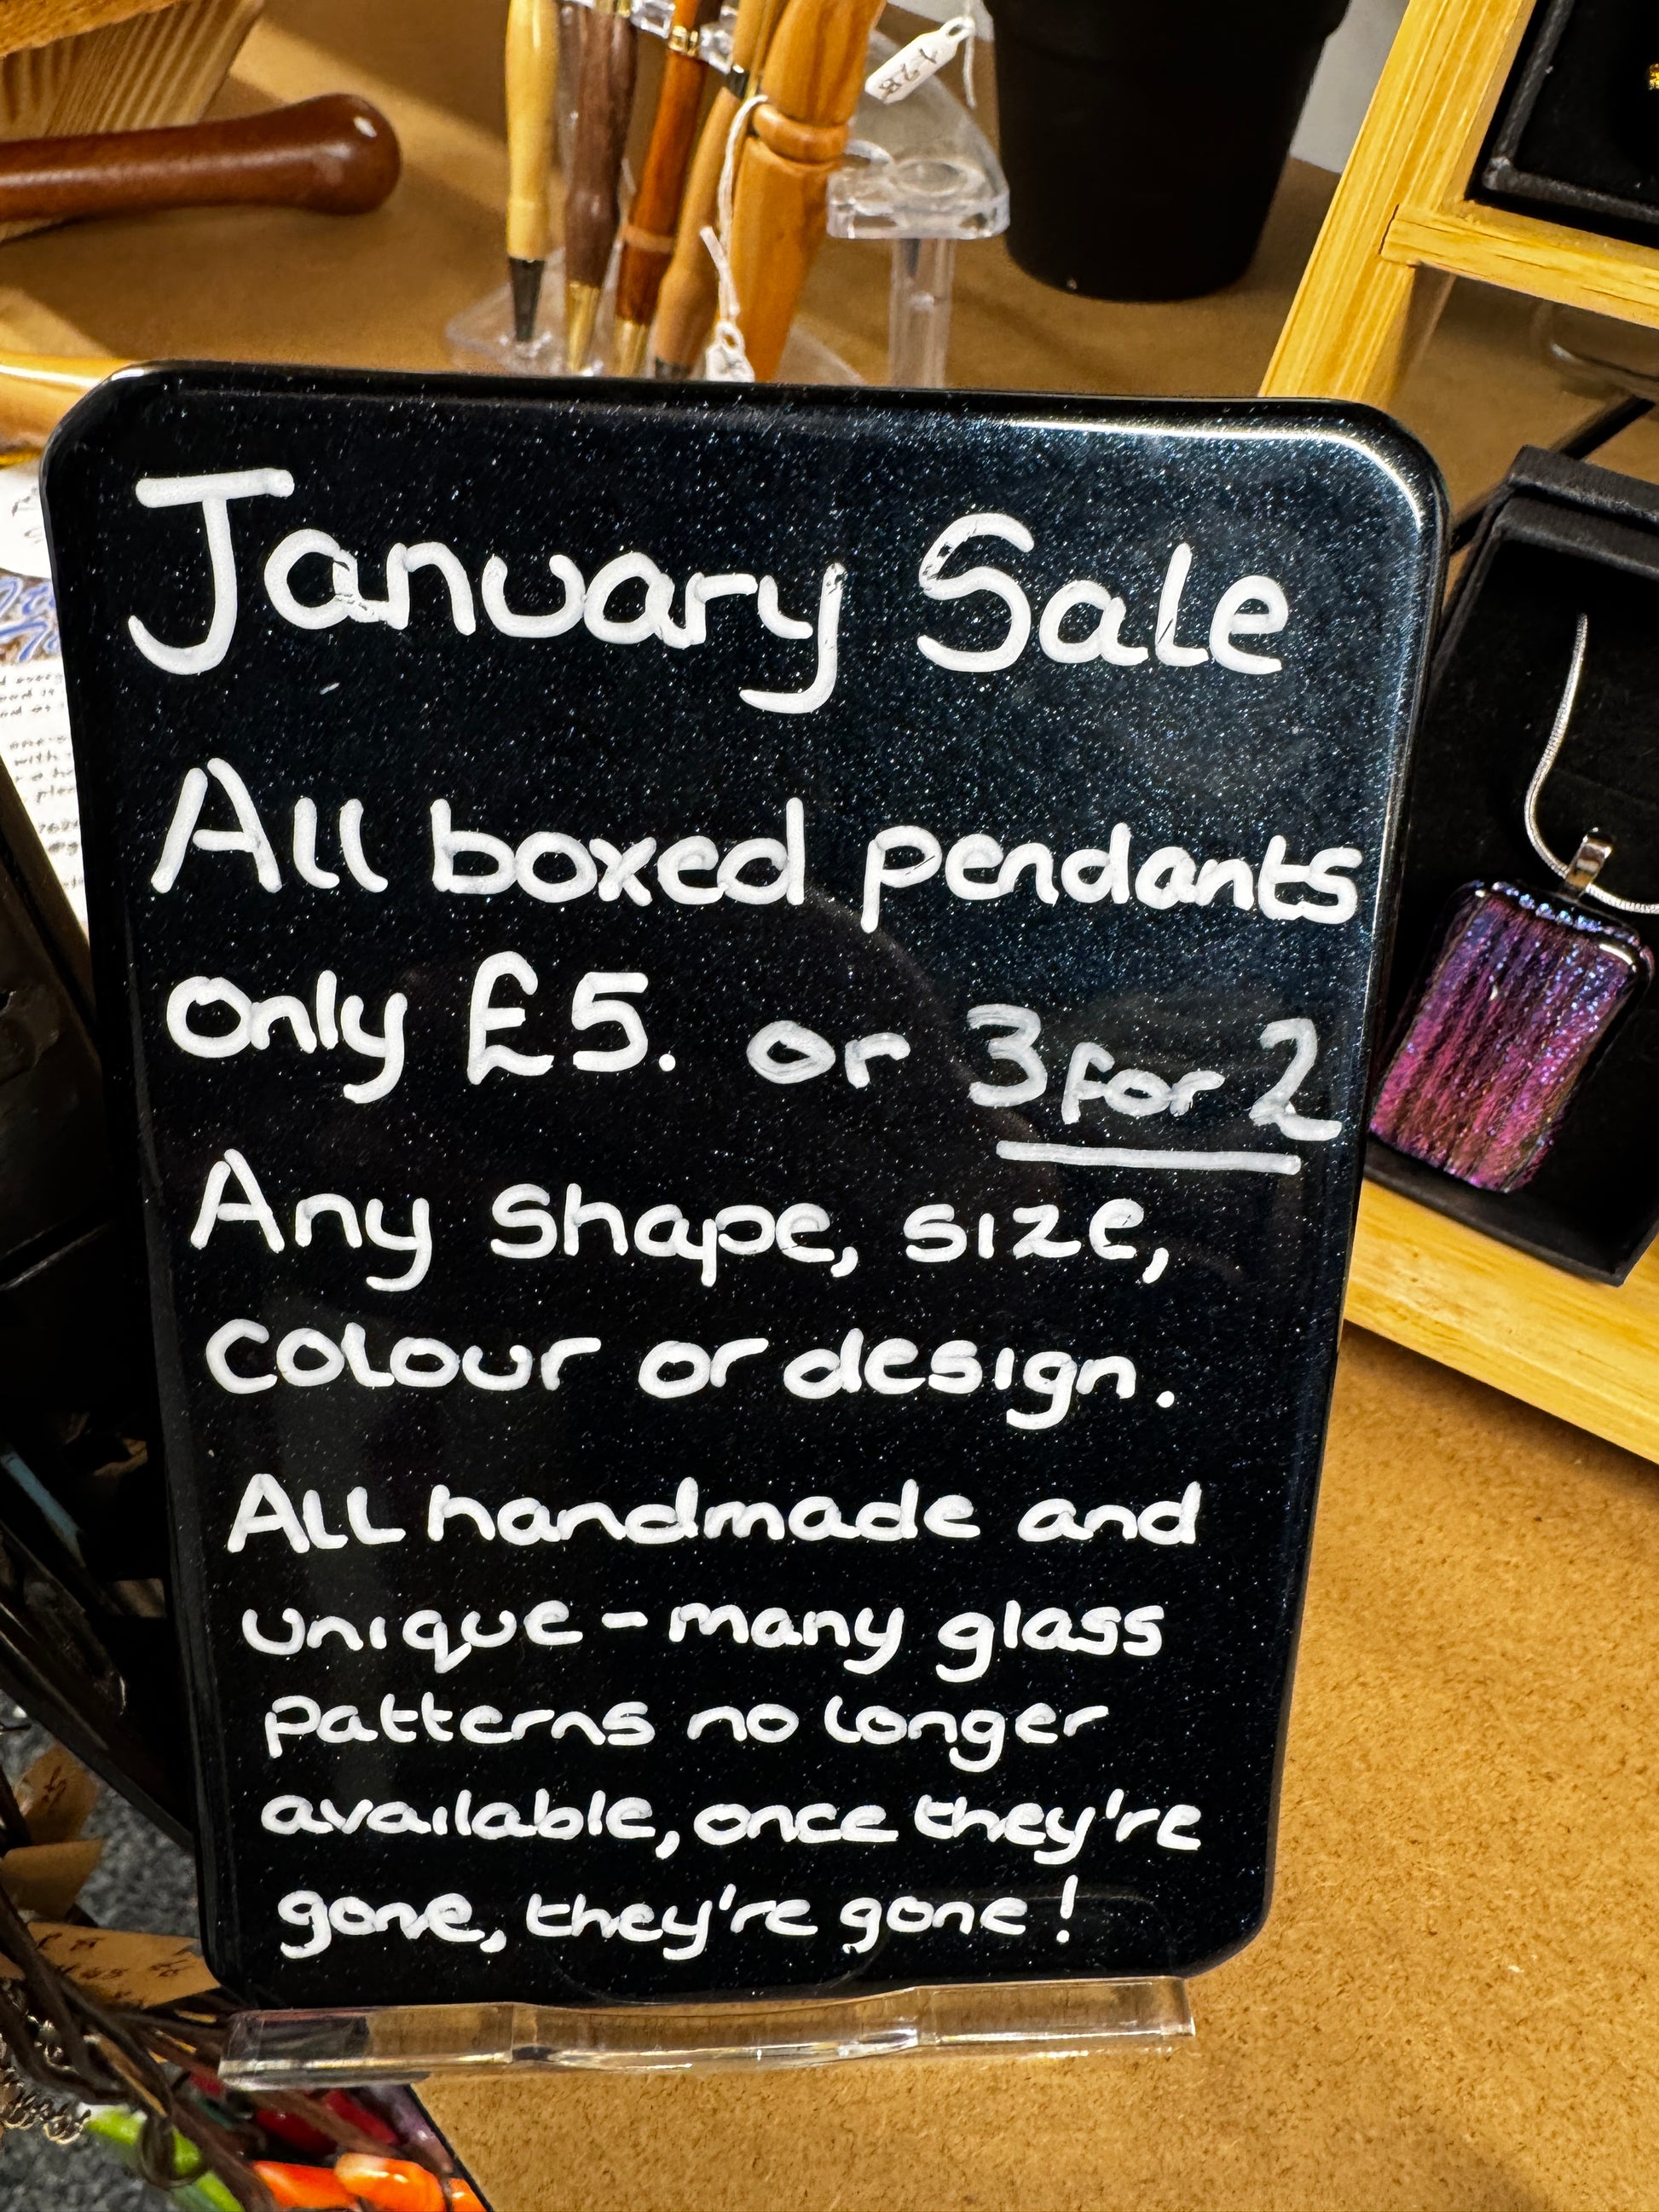 January Sale
All boxed pendants
only £5. or 3 for 2
Any shape, size,
colour or design.
All handmade and
unique - many glass
patterns no longer
available, once they're
gone, they're gone!